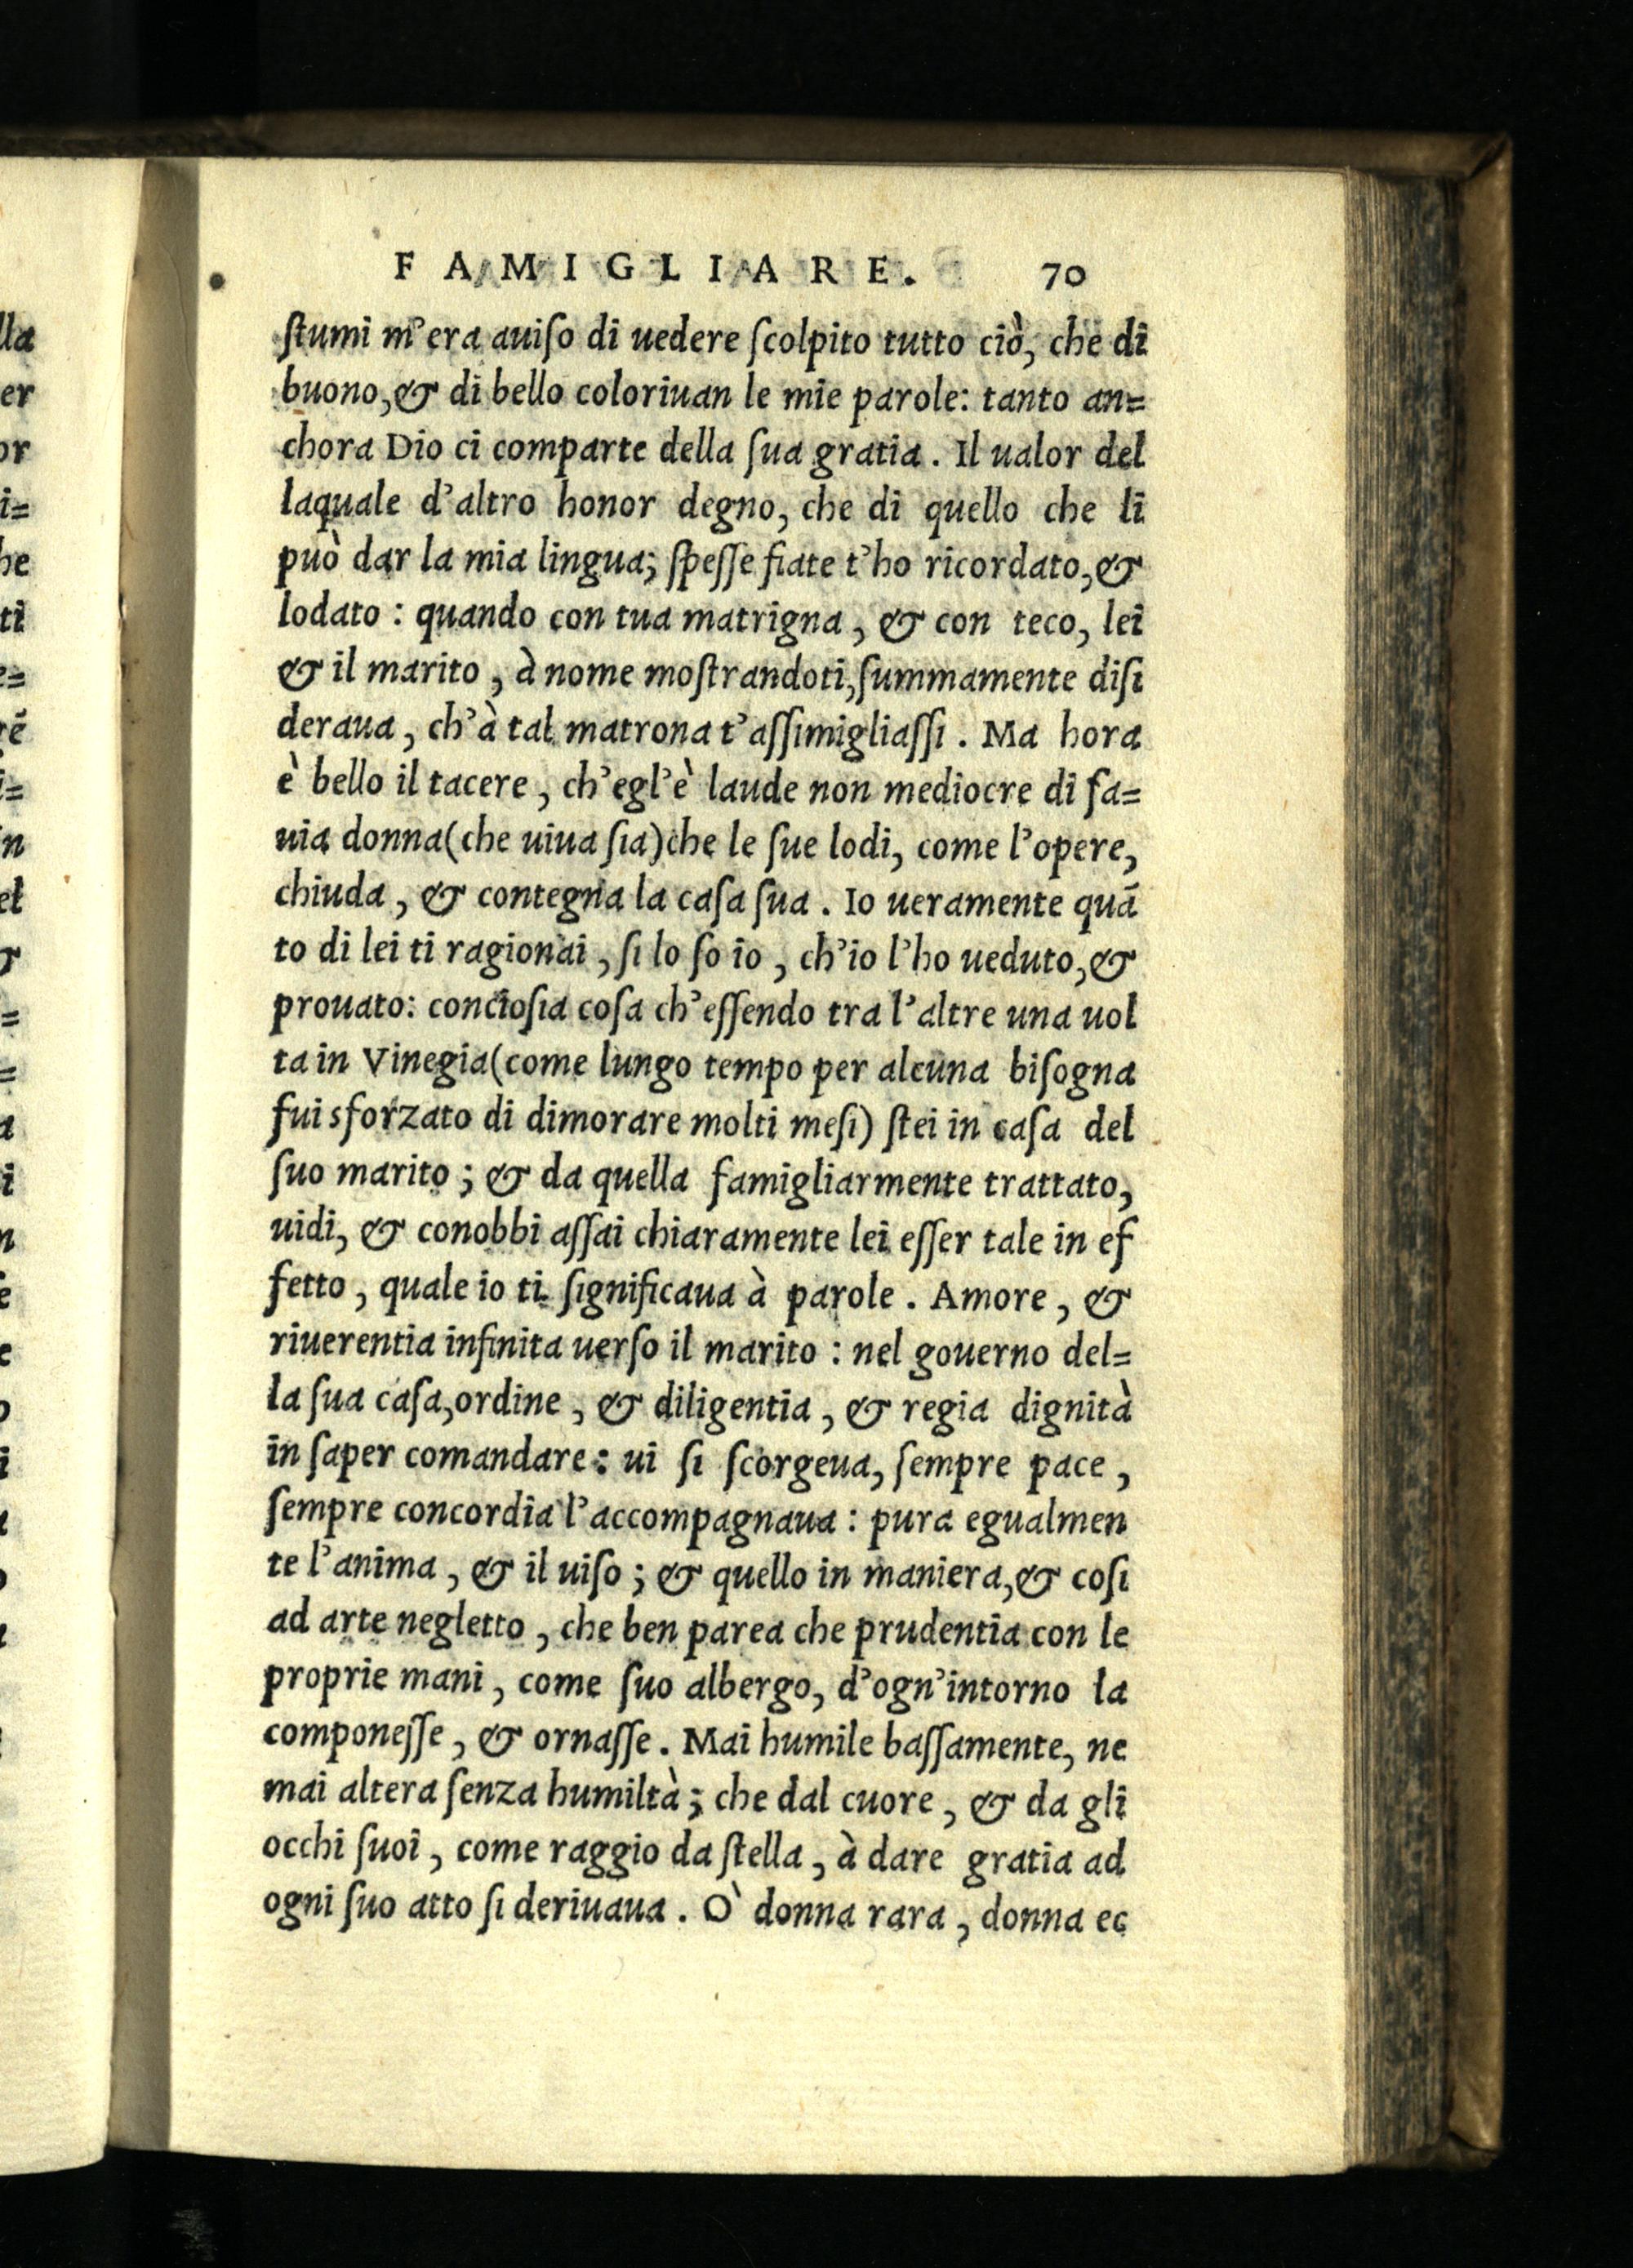 FAMIGLIARE. 70
ſtumi m'era auiſo di uedere ſcolpito tutto ciò, che di
buono, & di bello coloriuan le mie parole: tanto an=
chora Dio ci comparte della ſua gratia. Il ualor del
laquale d'altro honor degno, che di quello che li
può dar la mia lingua; ſpeſſe fiate t'ho ricordato, &
lodato: quando con tua matrigna, & con teco, lei
& il marito, à nome moſtrandoti, ſummamente diſi
deraua, ch'à tal matrona t'aſſimigliaſſi. Ma hora
è bello il tacere, ch'egl'è laude non mediocre di ſa=
uia donna (che uiua ſia) che le ſue lodi, come l'opere,
chiuda, & contegna la caſa ſua. Io ueramente quã
to di lei ti ragionai, ſi lo ſo io, ch'io l'ho ueduto, &
prouato: concioſia coſa ch'eſſendo tra l'altre una uol
ta in Vinegia (come lungo tempo per alcuna biſogna
fui sforzato di dimorare molti meſi) ſtei in caſa del
ſuo marito; & da quella famigliarmente trattato,
uidi, & conobbi aſſai chiaramente lei eſſer tale in ef
fetto, quale io ti ſignificaua à parole. Amore, &
riuerentia infinita uerſo il marito: nel gouerno del=
la ſua caſa, ordine, & diligentia, & regia dignità
in ſaper comandare: ui ſi ſcorgeua, ſempre pace,
ſempre concordia l'accompagnaua: pura egualmen
te l'anima, & il uiſo; & quello in maniera, & coſi
ad arte negletto, che ben parea che prudentia con le
proprie mani, come ſuo albergo, d'ogn'intorno la
componeſſe, & ornaſſe. Mai humile baſſamente, ne
mai altera ſenza humiltà; che dal cuore, & da gli
occhi ſuoi, come raggio da ſtella, à dare gratia ad
ogni ſuo atto ſi deriuaua. Ò donna rara, donna ec